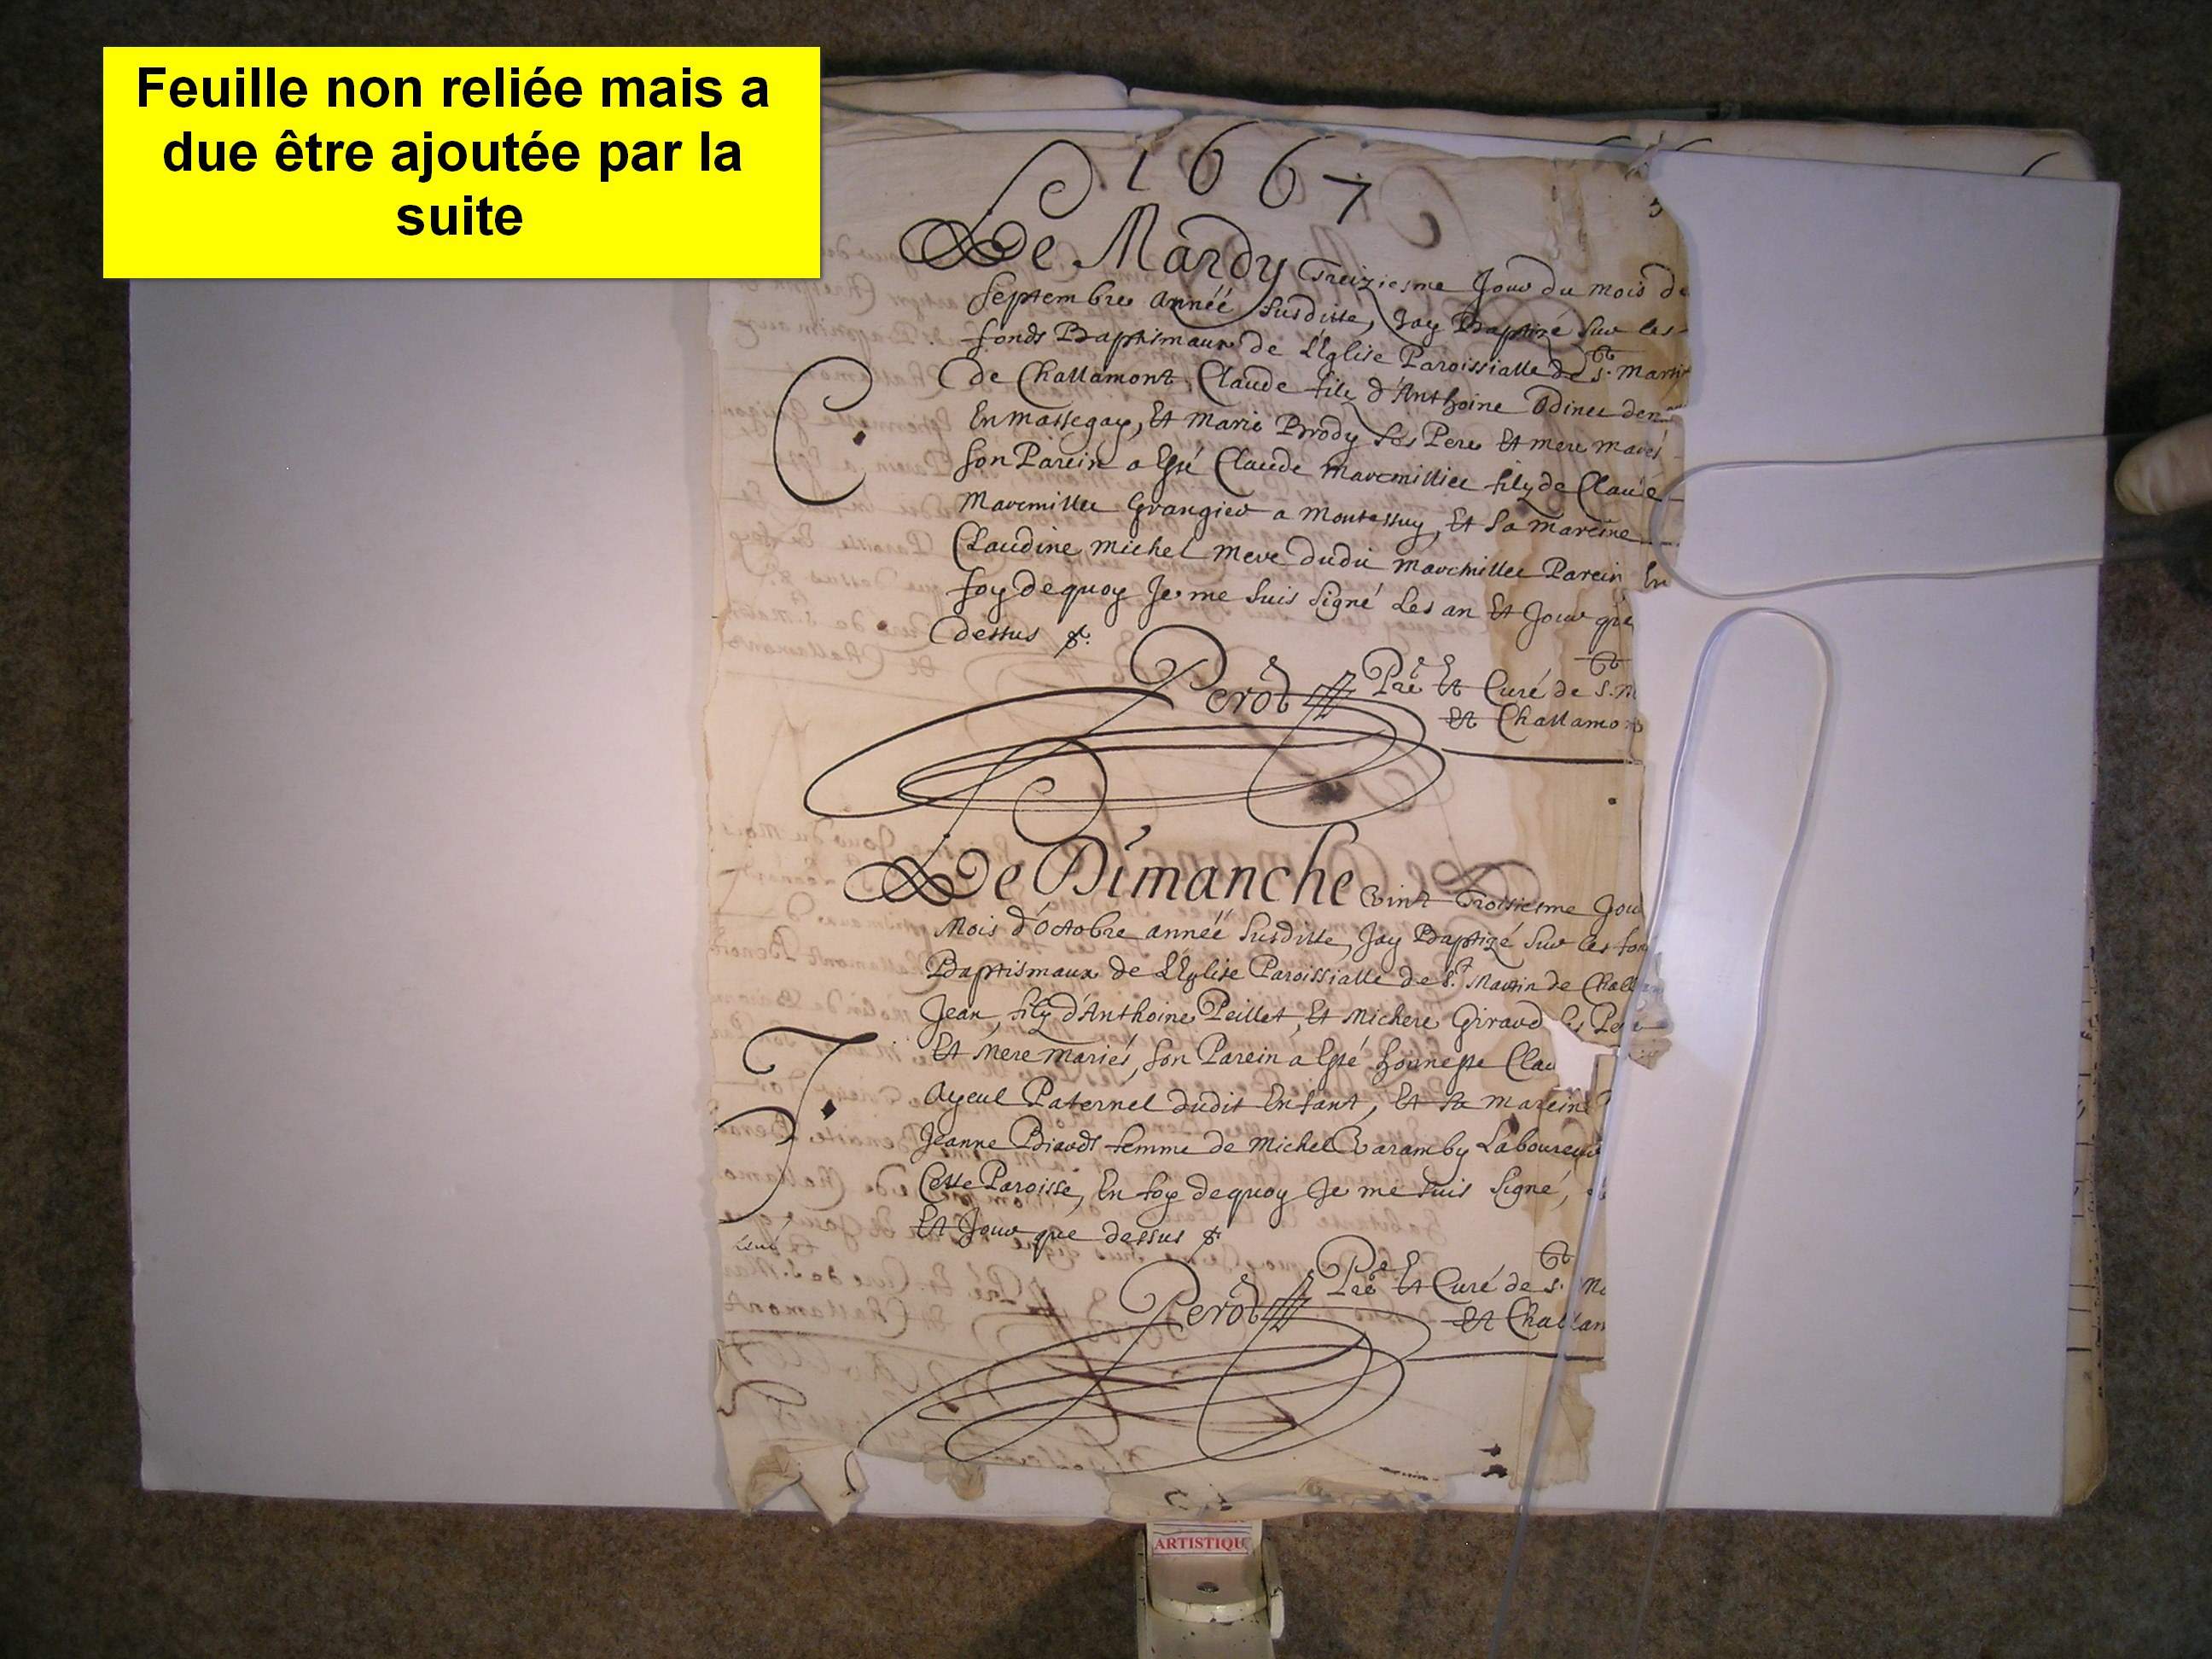 Feuille non reliée mais a
due être ajoutée par la
suite
1667
Le Mardy Treiziesme Jour du mois de
Septembre année susditte, Jay Baptizé sur les
fonds Baptismaux de L'Eglise Paroissialle de St. Martin
de Challamont, Claude filz d'Anthoine Odinet
En massegay, Et Marie Brody ses Pere Et mere mariés
son Parein a Esté Claude marcmillier filz de Claude
Marcmiller Grangier a Montessuy, Et sa mareine
Claudine michel mere dudit marcmiller Parein En
foy dequoy Je me suis signé Les an Et Jour que
dessus &.
C.
Perod Pre Et Curé de St. M
Et Challamo
Le Dimanche Vint Troisiesme Jou
Mois d'Octobre année susditte, Jay Baptizé sur les fon
Baptismaux de L'Eglise Paroissialle de St. Martin de Challam
Jean, filz d'Anthoine Peillet, Et Michere Giraud ses Pere
Et mere mariés, son Parein a Esté honneste Clau
Ayeul Paternel dudit Enfant, Et sa mareine
Jeanne Biaudt femme de Michel Varamby Laboureur
Cette Paroisse, En foy dequoy Je me suis signé,
Et Jour que dessus &
J.
Perod Pre Et Curé de St. Ma
Et Challam
ARTISTIQU